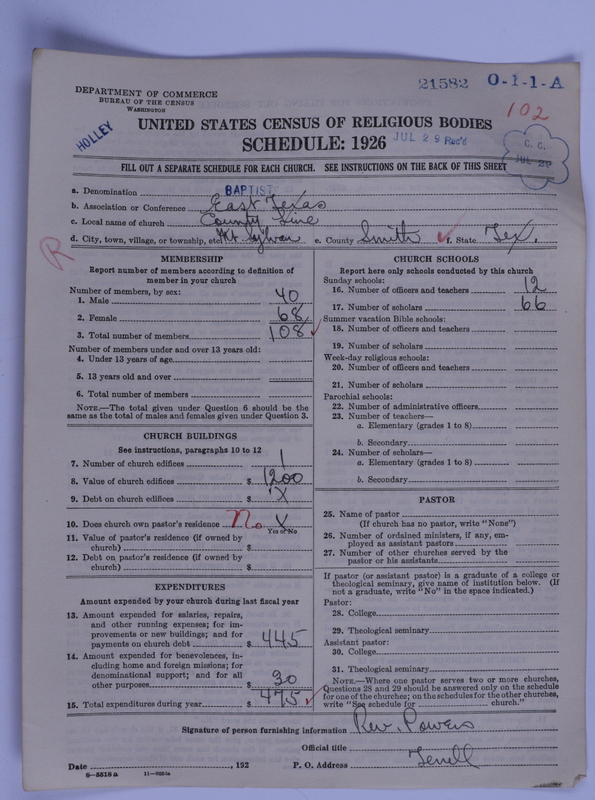 21582 O-1-1-A
DEPARTMENT OF COMMERCE
BUREAU OF THE CENSUS
WASHINGTON
102
HOLLEY
UNITED STATES CENSUS OF RELIGIOUS BODIES
JUL 29 Rec'd
C. C.
JUL 29
SCHEDULE: 1926
FILL OUT A SEPARATE SCHEDULE FOR EACH CHURCH. SEE INSTRUCTIONS ON THE BACK OF THIS SHEET
a. Denomination BAPTIST
b. Association or Conference East Texas
c. Local name of church County Line
d. City, town, village, or township, etc Mt Sylvan e. County Smith f. State Tex.
R
MEMBERSHIP
Report number of members according to definition of
member in your church
Number of members, by sex:
1. Male 40
2. Female 68
3. Total number of members 108
Number of members under and over 13 years old:
4. Under 13 years of age
5. 13 years old and over
6. Total number of members
NOTE.—The total given under Question 6 should be the
same as the total of males and females given under Question 3.
CHURCH BUILDINGS
See instructions, paragraphs 10 to 12
7. Number of church edifices 1
8. Value of church edifices $ 1200
9. Debt on church edifices $ X
10. Does church own pastor's residence No X
Yes or No
11. Value of pastor's residence (if owned by
church) $
12. Debt on pastor's residence (if owned by
church) $
EXPENDITURES
Amount expended by your church during last fiscal year
13. Amount expended for salaries, repairs,
and other running expenses; for im-
provements or new buildings; and for
payments on church debt $ 445
14. Amount expended for benevolences, in-
cluding home and foreign missions; for
denominational support; and for all
other purposes $ 30
15. Total expenditures during year $ 475
CHURCH SCHOOLS
Report here only schools conducted by this church
Sunday schools:
16. Number of officers and teachers 12
17. Number of scholars 66
Summer vacation Bible schools:
18. Number of officers and teachers
19. Number of scholars
Week-day religious schools:
20. Number of officers and teachers
21. Number of scholars
Parochial schools:
22. Number of administrative officers
23. Number of teachers—
a. Elementary (grades 1 to 8)
b. Secondary
24. Number of scholars—
a. Elementary (grades 1 to 8)
b. Secondary
PASTOR
25. Name of pastor
(If church has no pastor, write "None")
26. Number of ordained ministers, if any, em-
ployed as assistant pastors
27. Number of other churches served by the
pastor or his assistants
If pastor (or assistant pastor) is a graduate of a college or
theological seminary, give name of institution below. (If
not a graduate, write "No" in the space indicated.)
Pastor:
28. College
29. Theological seminary
Assistant pastor:
30. College
31. Theological seminary
NOTE.—Where one pastor serves two or more churches,
Questions 28 and 29 should be answered only on the schedule
for one of the churches; on the schedules for the other churches,
write "See schedule for church."
Signature of person furnishing information Rev. Powers
Official title
Date , 192 P. O. Address Terrell
8—5518 a